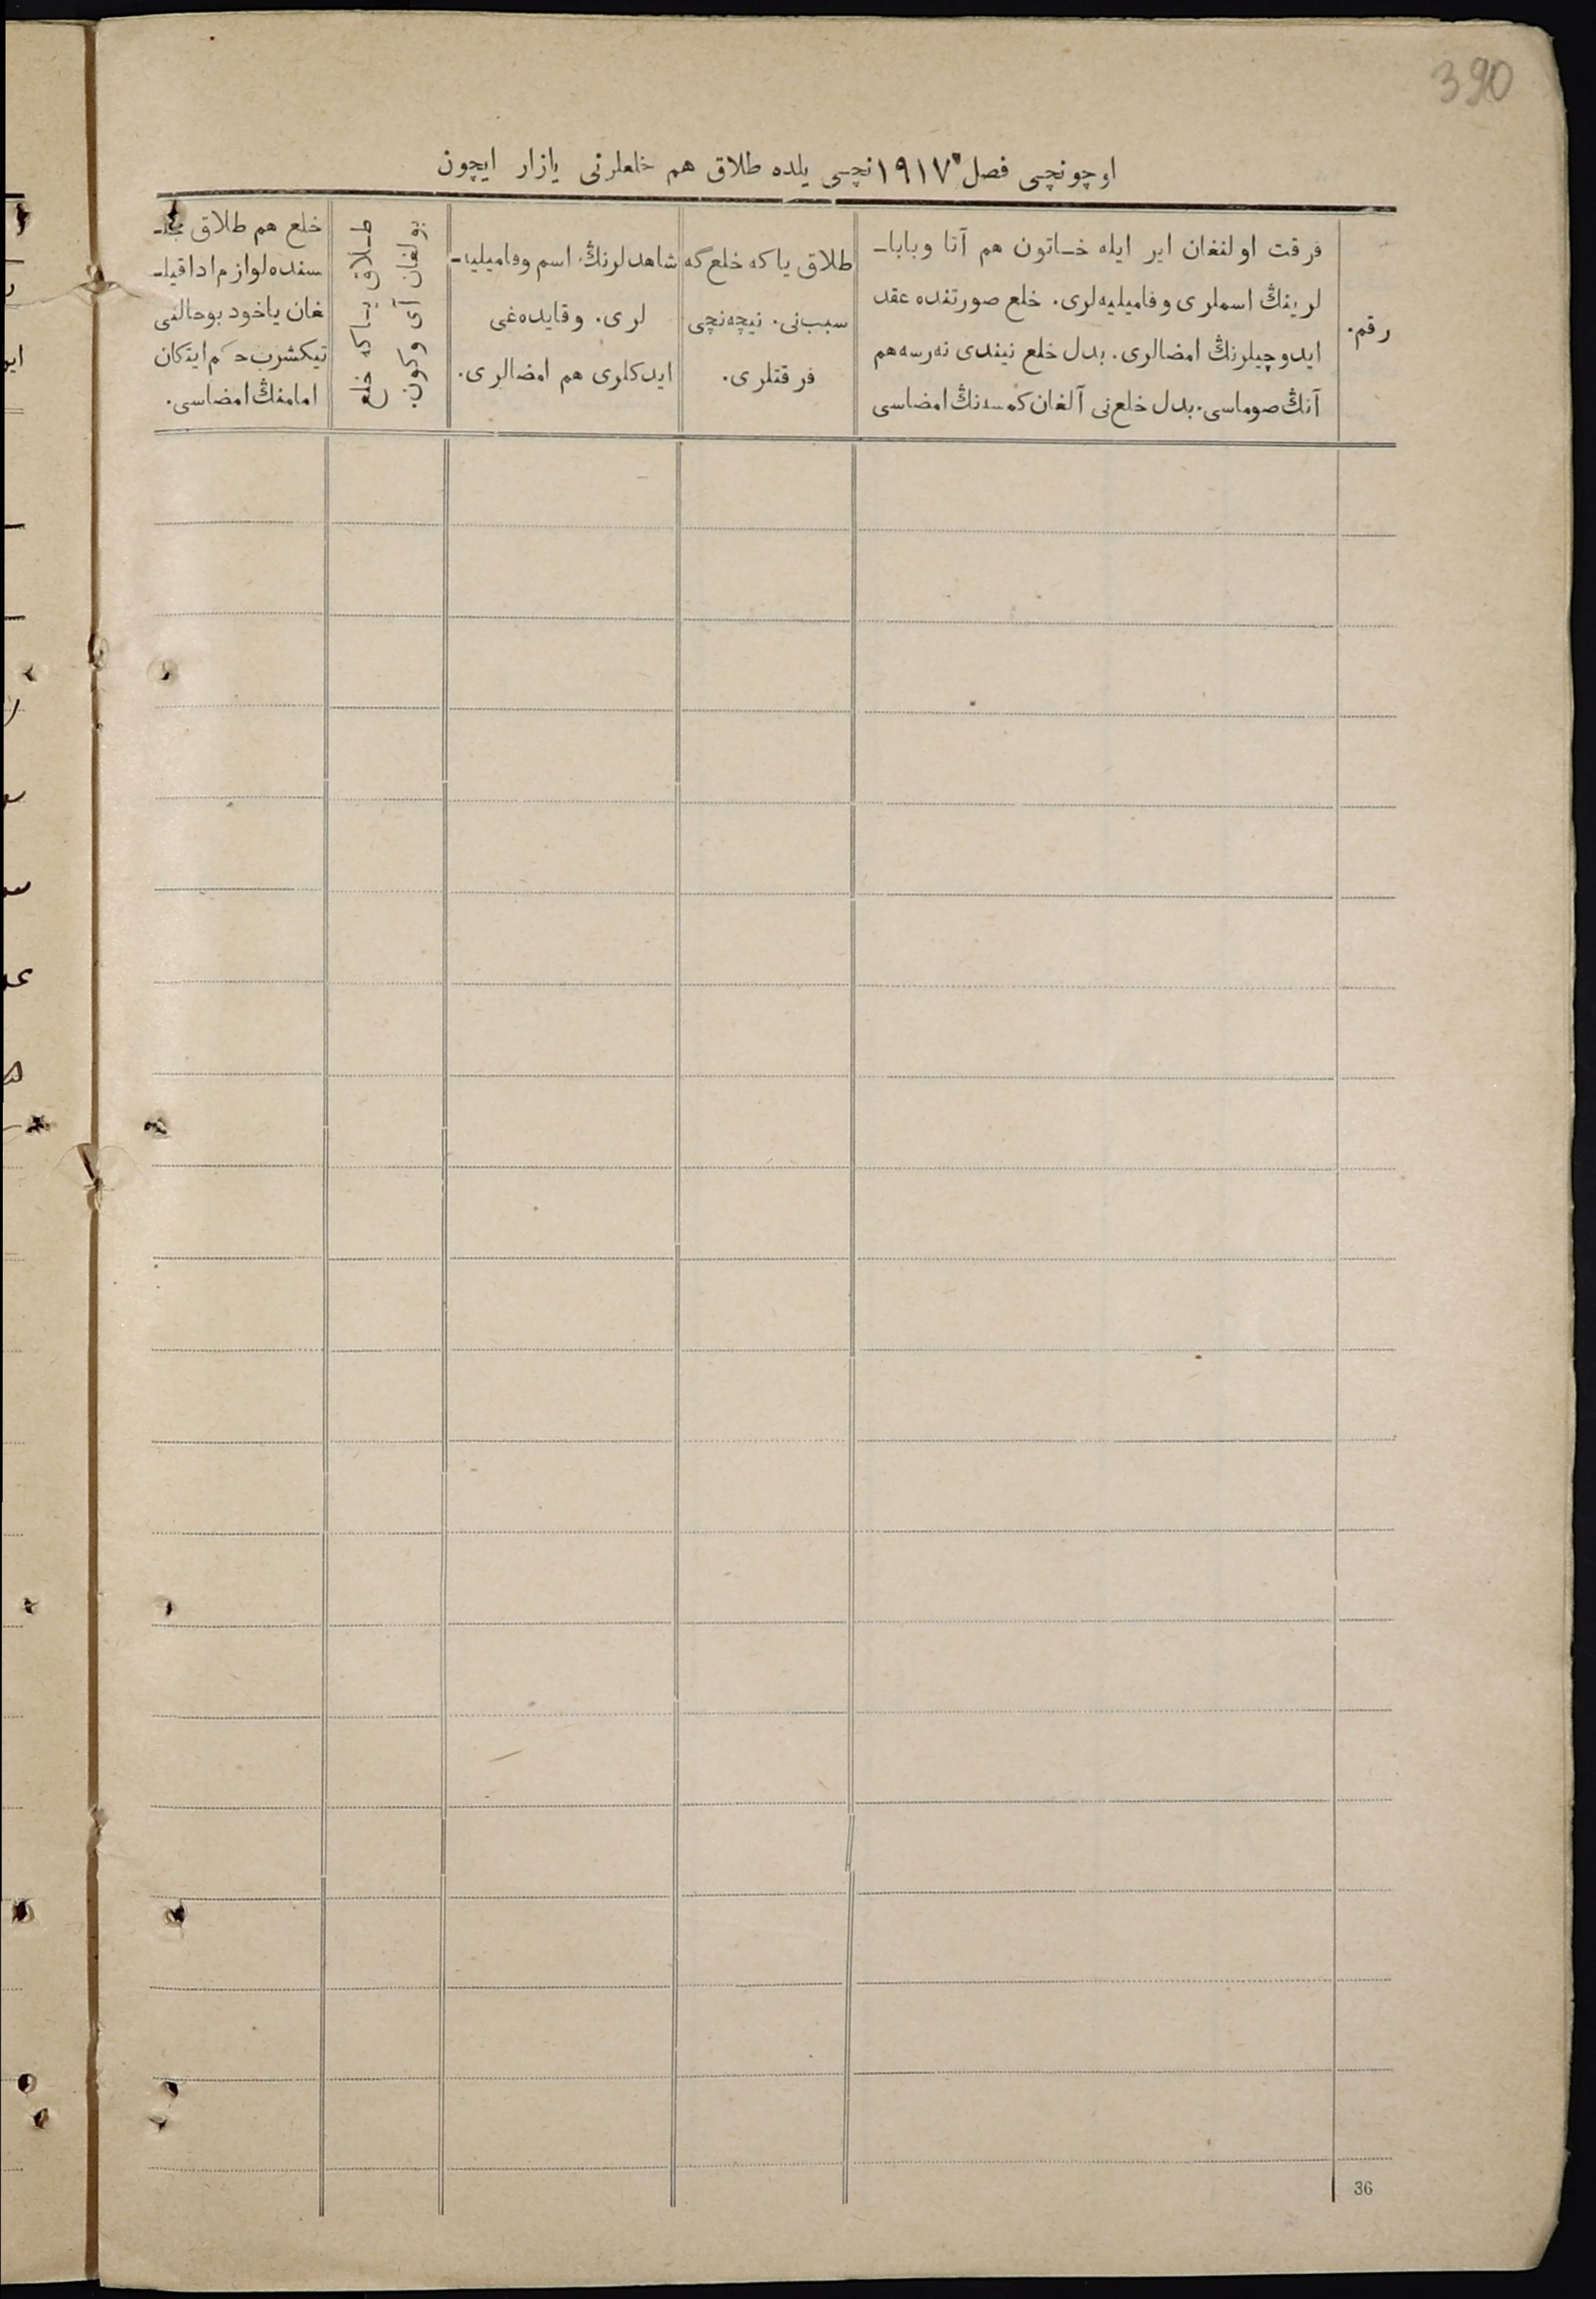 390
اوچونچی فصل ۱۹۱۷نچی یلده طلاق هم خلعلرنی یازار ایچون
رقم.
فرقت اولنغان ایر ایله خـاتون هم آتا وباباـ
لرینڭ اسملری وفامیلیه‌لری. خلع صورتنده عقد
ایدوچیلرنڭ امضالری. بدل خلع نیندی نه‌رسه‌هم
آنڭ صوماسی. بدل خلع‌نی آلغان کمسه‌نڭ امضاسی
طلاق یاکه خلع‌گه
سبب‌نی. نیچه‌نچی
فرقتلری.
شاهدلرنڭ اسم وفامیلیه‌ـ
لری. وقایده‌غی
ایدکلری هم امضالری.
طـلاق یـاکه خلع
بولغان آی وکون.
خلع هم طلاق مجلـ
سنده‌لوازم‌اداقیلـ
غان یاخود بوحالنی
تیکشرب حکم ایتکان
امامنڭ امضاسی.
36